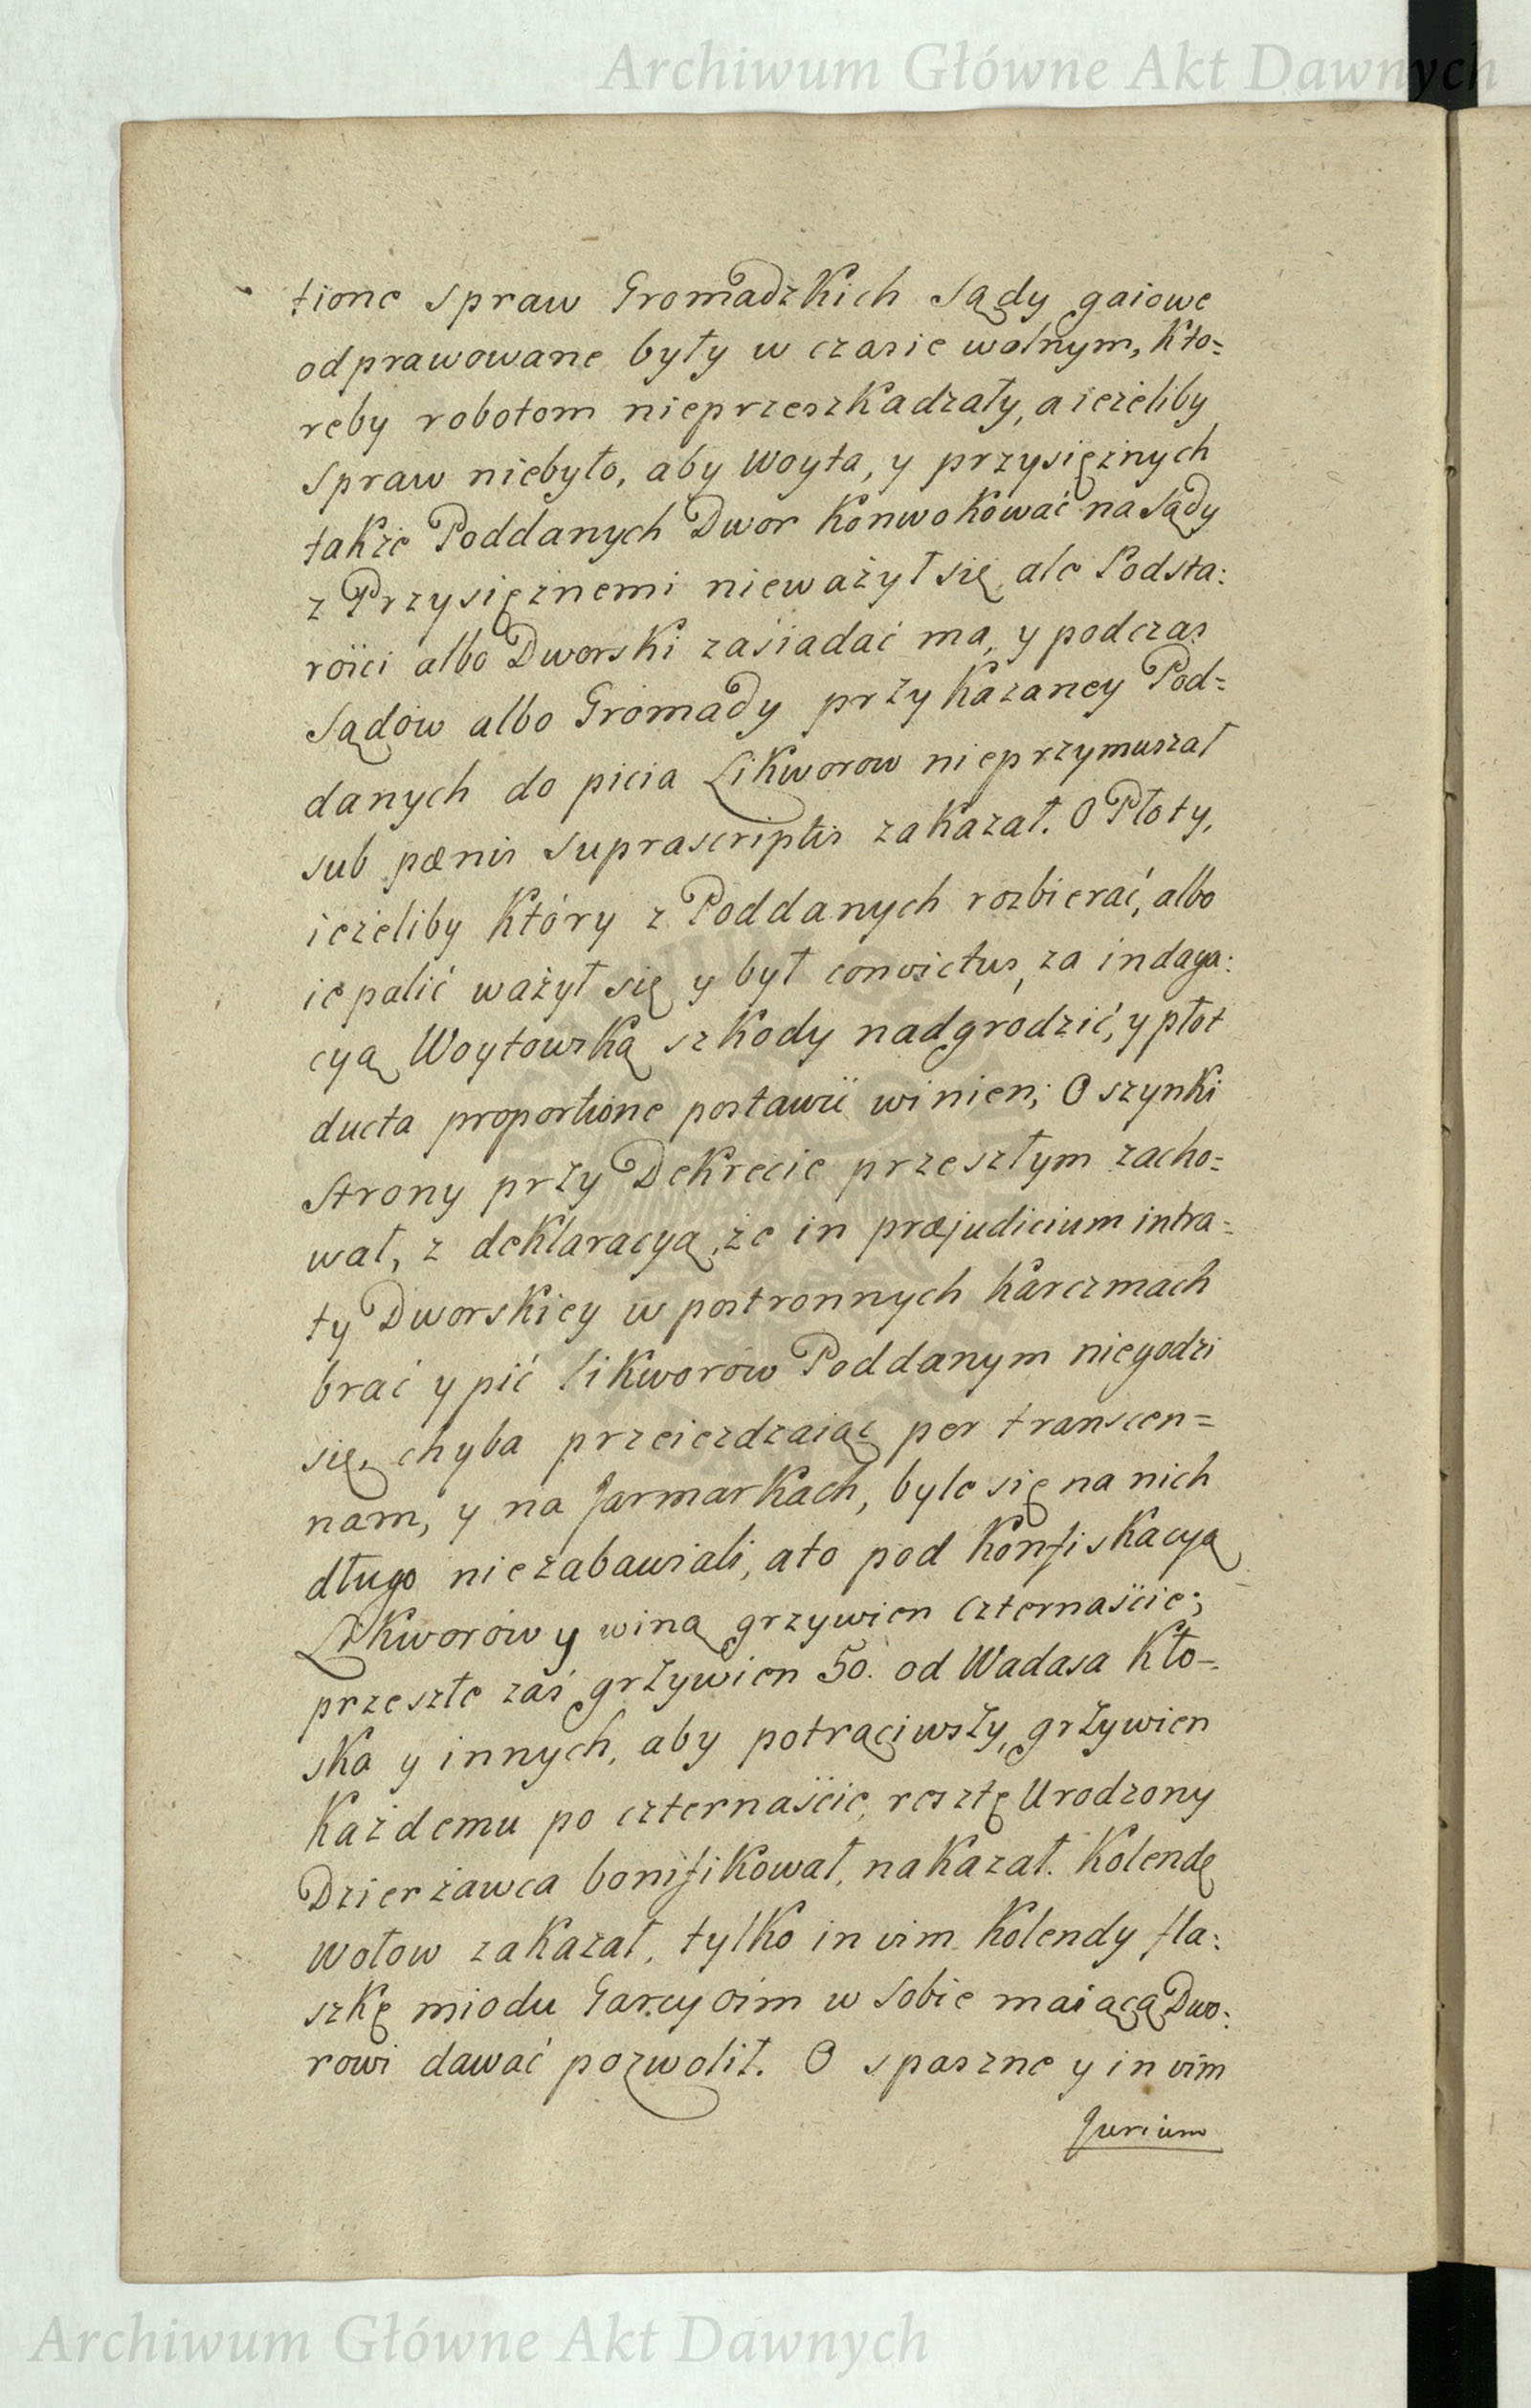 Archiwum Główne Akt Dawnych
tione spraw Gromadzkich Sądy gaiowe
odprawowane były w czasie wolnym, kto=
reby robotom nieprzeszkadzały, a ieżeliby
spraw niebyło, aby Woyta, y przysiężnych
także Poddanych Dwor konwokować na Sądy
z Przysiężnemi nieważył się, ale Podsta:
rości albo Dworski zasiadać ma, y podczas
Sądów albo Gromady przykazaney Pod=
danych do picia Likworow nieprzymuszał
sub pœnis suprascriptis zakazał. O Płoty,
ieżeliby który z Poddanych rozbierać, albo
ie palić ważył się y był convictus, za indaga:
cyą Woytowską szkody nadgrodzić, y płot
ducta proportione postawić winien; O szynki
Strony przy Dekrecie przeszłym zacho=
wał, z deklaracyą, że in præjudicium intra=
ty Dworskiey w postronnych karczmach
brać y pić likworów Poddanym niegodzi
się, chyba przeieżdzaiąc per transcen=
nam, y na Jarmarkach, byle się na nich
długo niezabawiali, ato pod konfiskacyą
Likworów y winą grzywien czternaście;
przeszłe zaś grzywien 50. od Wadasa Kło=
ska y innych, aby potrąciwszy, grzywien
każdemu po czternaście, resztę Urodzony
Dzierżawca bonifikował, nakazał. Kolendę
Wołow zakazał, tylko in vim kolendy fla:
szkę miodu Garcy ośm w sobie maiącą Dwo:
rowi dawać pozwolił. O spaszne y in vim
Jurium
Archiwum Główne Akt Dawnych